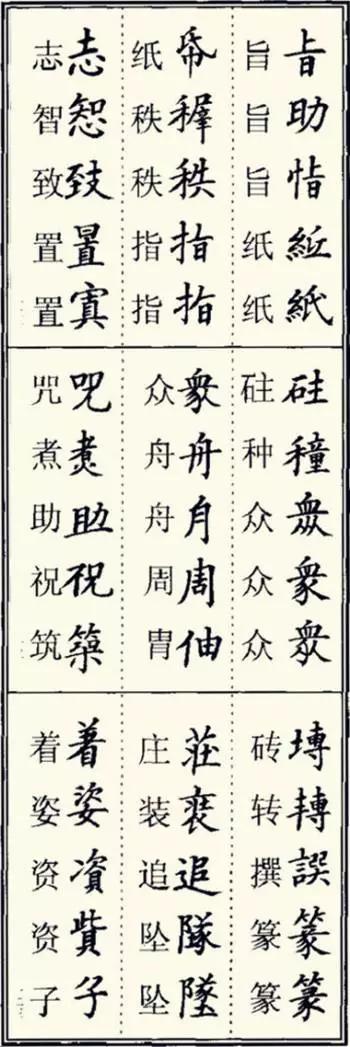 恉紙
旨旨旨纸纸
帋秩指指
纸秩秩指指
志致置寘
志智致置置
砫穜眾衆衆
砫种众众众
衆舟月周伷
众舟舟周胄
呪煑助祝築
咒煮助祝筑
塼轉譔篆篆
砖转撰篆篆
莊追隊墜
庄装追坠坠
着姿資貲子
着姿资资子